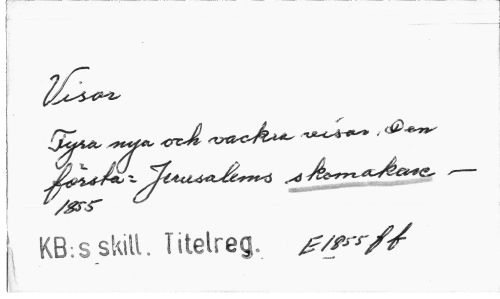 Visor
Fyra nya och vackra visor. Den
första= Jerusalems skomakare —
1855
KB:s skill. Titelreg. E 1855 ff